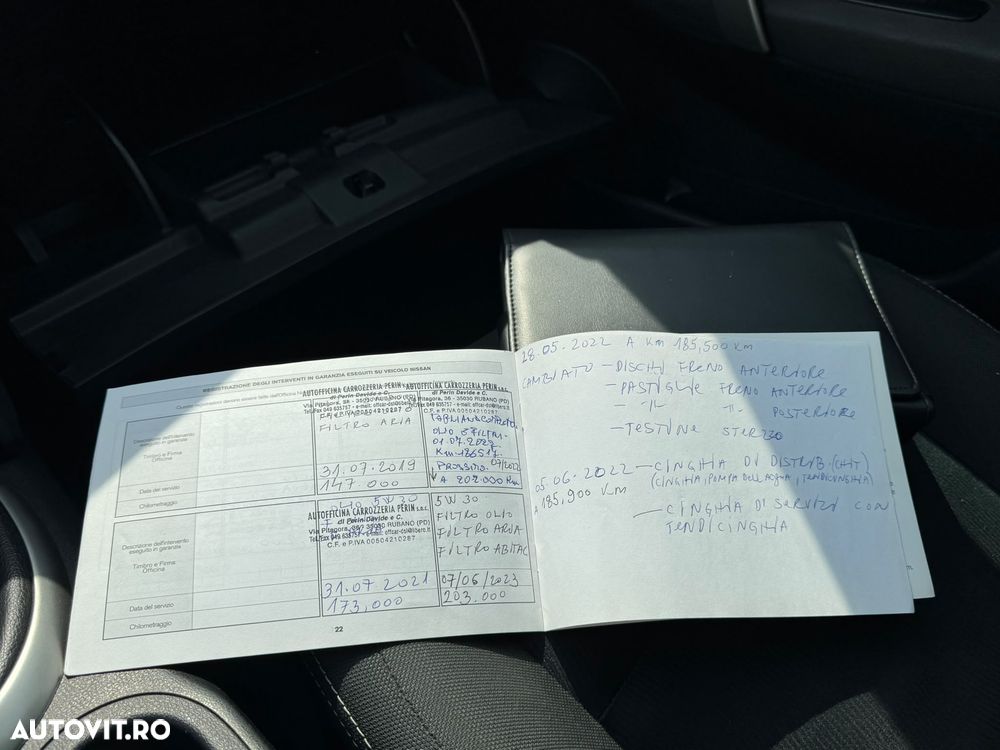 REGISTRAZIONE DEGLI INTERVENTI IN GARANZIA ESEGUITI SU VEICOLO NISSAN
Questa registrazioni devono essere fatte dall'Officina
Descrizione dell'intervento
eseguito in garanzia
Timbro e Firma
Officina
Data del servizio
Chilometraggio
AUTOFFICINA CARROZZERIA PERIN
di Perin Davide e C.
Via Pitagora, 36 - 35030 RUBANO (PD)
FILTRO ARIA
31.07.2019
147.000
AUTOFFICINA CARROZZERIA PERIN s.n.c.
di Perin Davide e C.
Pitagora, 36 - 35030 RUBANO (PD)
C.F. e P.IVA 00504210287
OLIO E FILTRI
01.07.2022
PROSSIMO 07/2023
A 202.000 Km
Descrizione dell'intervento
eseguito in garanzia
Timbro e Firma
Officina
Data del servizio
Chilometraggio
OLIO 5W30
AUTOFFICINA CARROZZERIA PERIN s.n.c.
di Perin Davide e C.
Via Pitagora, 36 35030 RUBANO (PD)
C.F. e P.IVA 00504210287
31.07 2021
173,000
5W 30
FILTRO OLIO
FILTRO ARIA
FILTRO ABITAC
07/06/2023
203.000
22
28.05.2022 A Km 185,500 Km
CAMBIATO - DISCHI FRENO ANTERIORE
- PASTIGLIE FRENO ANTERIORE
- -"- "- POSTERIORE
- TESTINE STERZO
05.06.2022 - CINGHIA DI DISTRIB. (CHIT)
(CINGHIA, POMPA DELL'ACQUA, TENDICINGHIA)
A 185,900 Km
- CINGHIA DI SERVIZI CON
TENDICINGHIA
AUTOVIT.RO